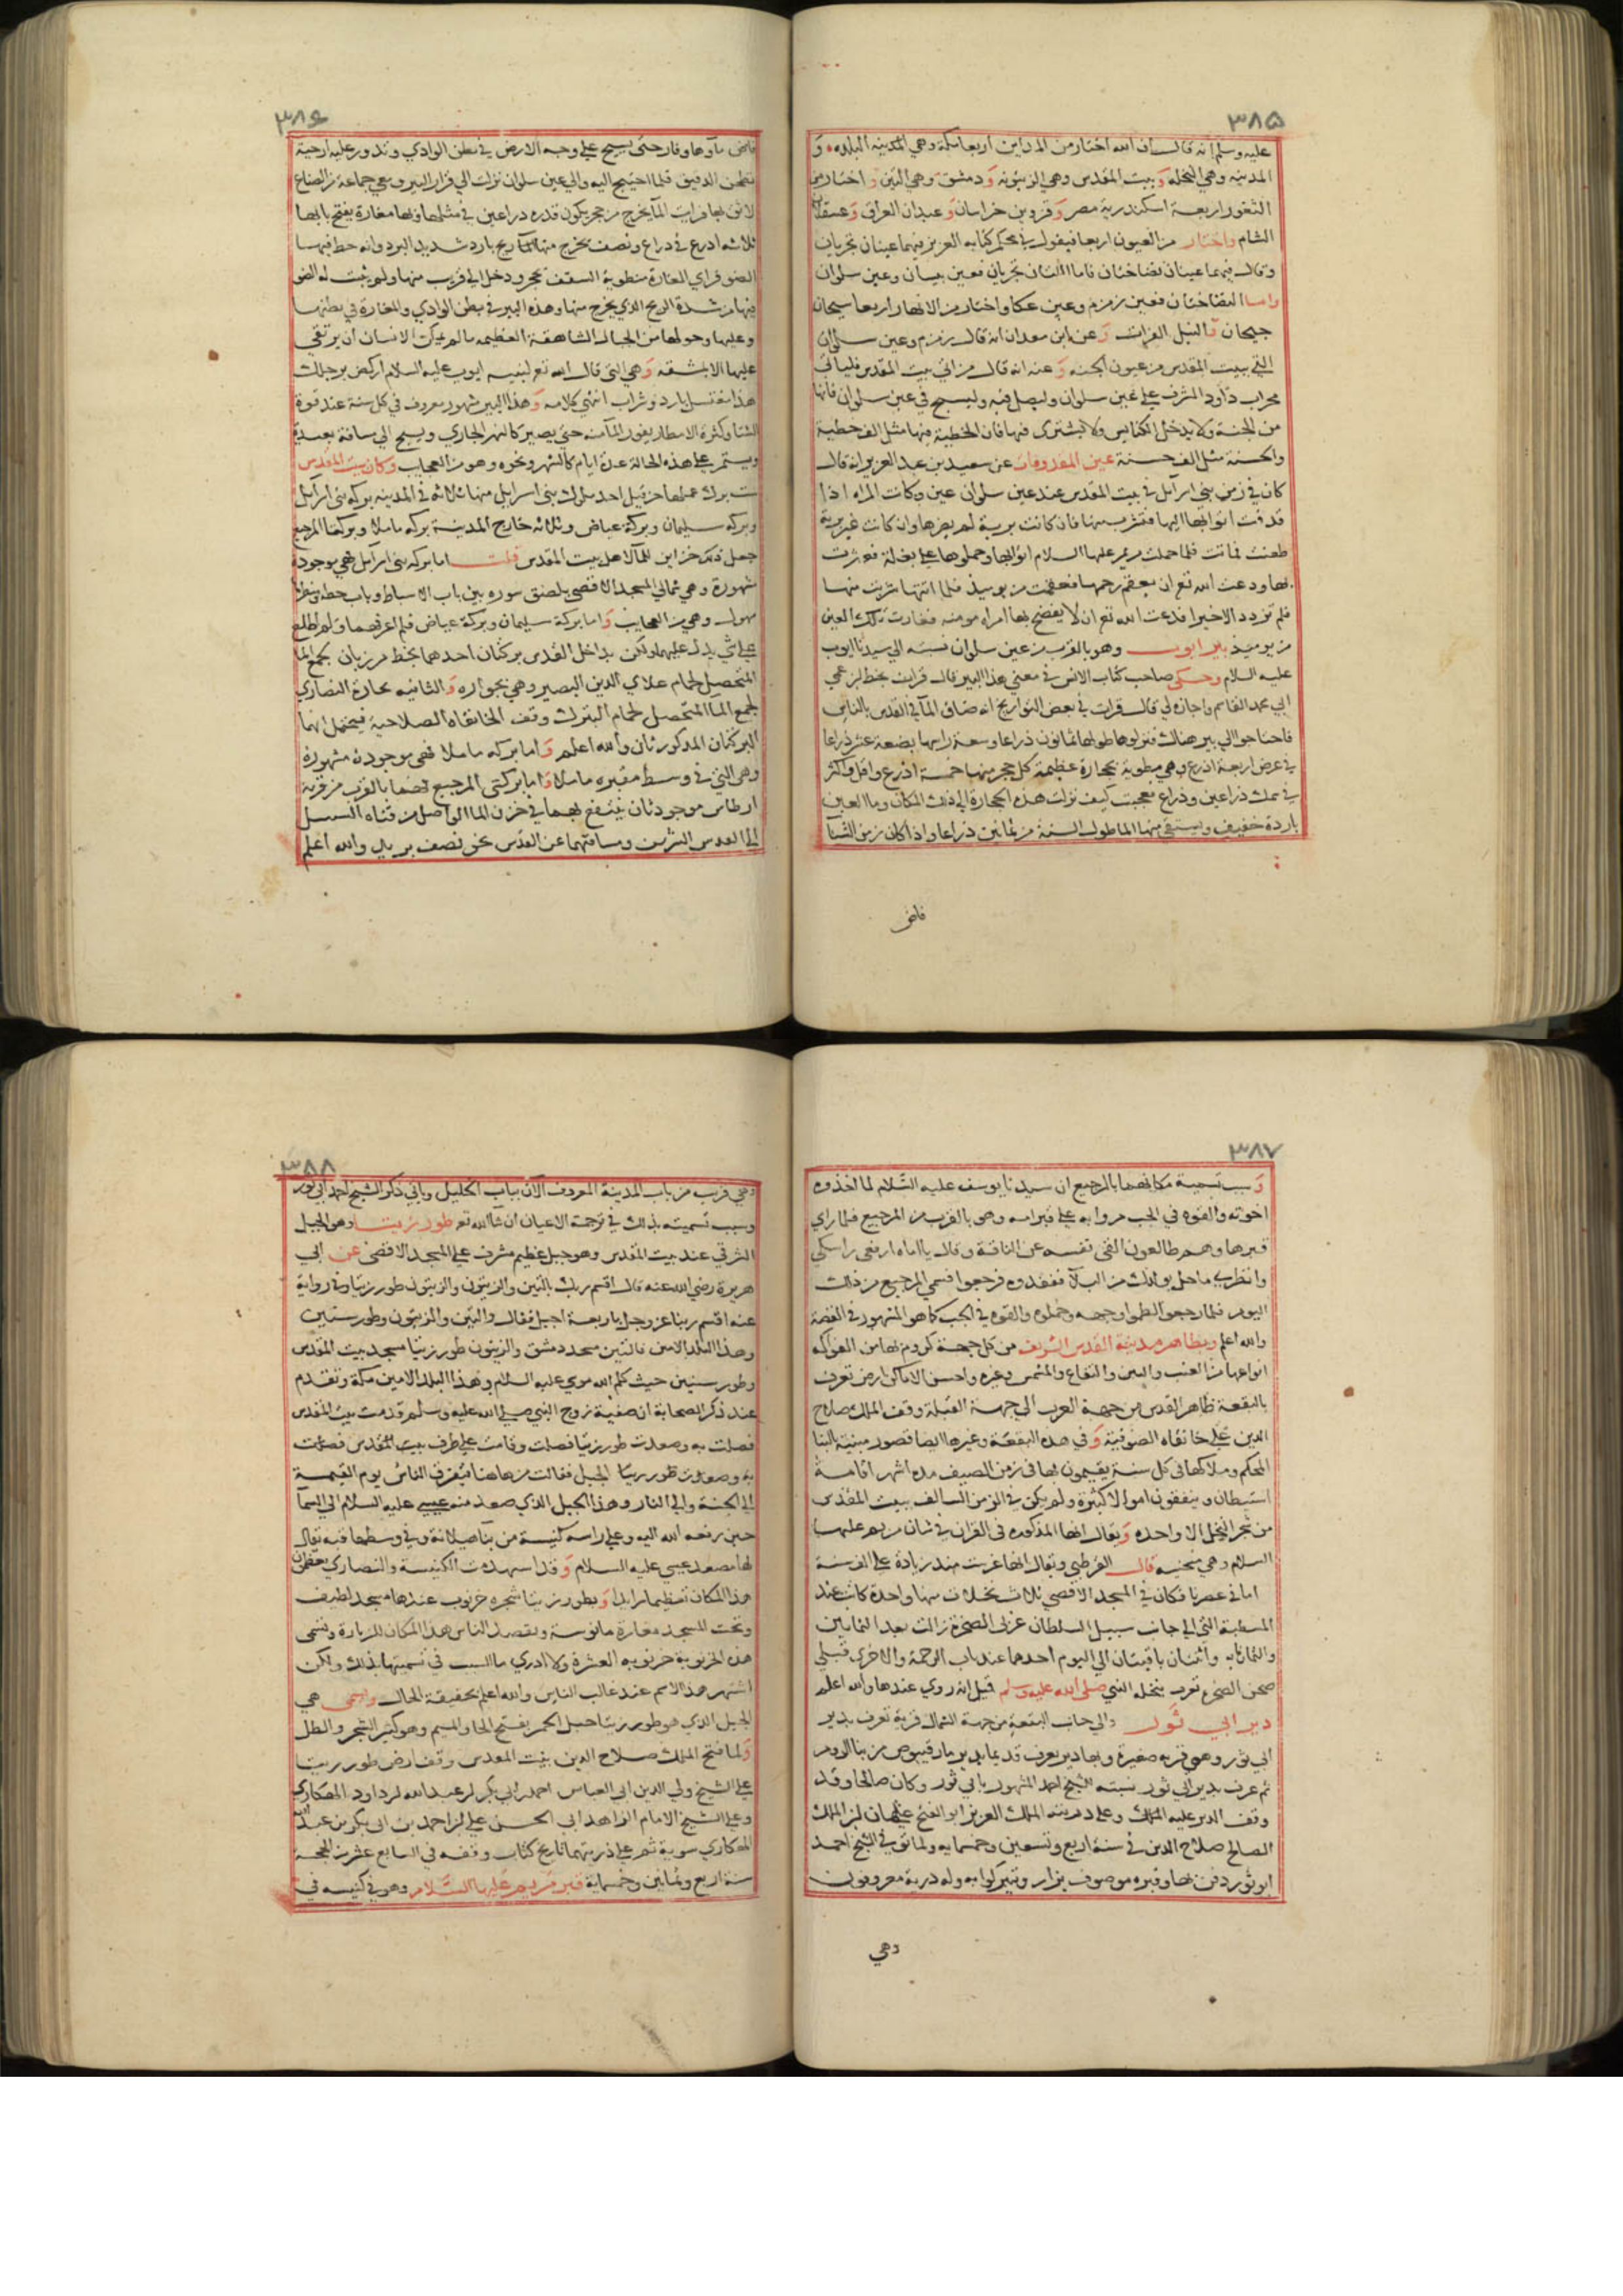 ٣٨٥
عليه وسلم انه قال ان الله اختار من المداين اربعا مكة وهي المدينه البلده و
المدينه وهي النخله وبيت المقدس وهي الزيتونه ودمشق وهي التين واختار من
الثغور اربعة اسكندرية مصر وقزوين خراسان وعبدان العراق وعسقلان
الشام واختار من العيون اربعا فيقول في محكم كتابه العزيز فيهما عينان تجريان
وقال فيهما عينان نضاختان فاما اللتان تجريان فعين بيسان وعين سلوان
واما النضاختان فعين زمزم وعين عكا واختار من الانهار اربعا سيحان
جيحان والنيل الفرات وعن ابن معدان انه قال زمزم وعين سلوان
التي ببيت المقدس من عيون الجنه وعنه انه قال من اتي بيت المقدس فليات
محراب داود المشرف علي عين سلوان وليصل فيه وليسبح في عين سلوان فانها
من الجنة ولا يدخل الكنايس ولا يشتري فيها فان الخطية فيها مثل الف خطية
والحسنة مثل الف حسنة عين المقذوفات عن سعيد بن عبد العزيز انه قال
كان في زمن بني اسرآئل في بيت المقدس عند عين سلوان عين وكانت المراه اذا
قذفت اتوا بها اليها فتشرب منها فان كانت بريية لم يضرها وان كانت غير برية
طعنت فماتت فلما حملت مريم عليها السلام اتوا بها وحملوها علي بغلة فعثرت
بها ودعت الله تع ان يعقم رحمها فعقمت من يوميذ فلما انتها شربت منها
فلم تزدد الا خيرا فدعت الله تع ان لا يفضح بها امراه مومنه فغارت تلك العين
من يوميذ بير ايوب وهو بالقرب من عين سلوان نسبته الي سيدنا ايوب
عليه السلام وحكي صاحب كتاب الانس في معني هذا البير قال قرات بخط ابن عمي
ابي محمد القاسم واجازه لي قال قرات في بعض التواريخ انه ضاق المآ في القدس بالناس
فاحتاجوا الي بير هناك فنزلوها طولها ثمانون ذراعا وسعة راسها بضعة عشر ذراعا
في عرض اربعة اذرع وهي مطوية بحجارة عظيمة كل حجر منها خمسة اذرع واقل واكثر
في سمك ذراعين وذراع فعجبت كيف نزلت هذه الحجارة الي ذلك المكان وما العين
باردة خفيف ويستقي منها الما طول السنة من ثمانين ذراعا واذا كان زمن الشتا
فاض
٣٨٦
فاض مآوها وفار حتى يسيح علي وجه الارض في بطن الوادي وتدور عليه ارحية
تطحن الدقيق فلما احتيج اليه والي عين سلوان نزلت الي قرار البير ومعي جماعة من الصناع
لانقبها فرايت المآ يخرج من حجر يكون قدره ذراعين في مثلها وبها مغارة يفتح بابها
ثلاثه اذرع في ذراع ونصف يخرج منها ريح بارد شديد البرد وانه حط فيها
الضو فراي المغارة مطوية السقف بحجر ودخل الي قريب منها ولم يثبت له الضو
فيها من شدة الريح الذي يخرج منها وهذه البير في بطن الوادي والمغارة في بطنها
وعليها وحولها من الجبال الشاهقة العظيمه ما لم يمكن الانسان ان يرتقي
عليها الا بمشقه وهي التي قال الله تع لنبيه ايوب عليه السلام اركض برجلك
هذا مغتسل بارد وشراب انتهي كلامه وهذا البير مشهور معروف في كل سنة عند قوة
الشتا وكثرة الامطار يفور المآ منه حتى يصير كالنهر الجاري ويسيح الي مسافة بعيدة
ويستمر علي هذه الحالة عدة ايام كالشهر ونحوه وهو من العجايب وكان بيت المقدس
ست برك عملها حزقيل احد ملوك بني اسرايل منها ثلاثه في المدينه بركه بني اسرآئل
وبركه سليمان وبركة عياض وثلاثه خارج المدينة بركه ماملا وبركتا المرجيع
جعل ذلك خزاين للمآ لاهل بيت المقدس قلت اما بركه بني اسرآئل فهي موجودة
مشهورة وهي شمالي المسجد الاقصى بلصق سوره بين باب الاسباط وباب حطه ومنظرها
مهول وهي من العجايب واما بركة سليمان وبركة عياض فلم اعرفهما ولم اطلع
علي شي يدل عليهما ولكن بداخل القدس بركتان احدهما بخط مرزبان لجمع الما
المتحصل لحمام علاي الدين البصير وهي بجواره والثانيه بحارة النصاري
لجمع الما المتحصل لحمام البترك وقف الخانقاه الصلاحية فيحتمل انهما
البركتان المذكورتان والله اعلم واما بركه ماملا فهي موجودة مشهورة
وهي التي في وسط مقبره ماملا واما بركتي المرجيع فهما بالقرب من قرية
ارطاس موجودتان ينتفع بهما في خزن الما الواصل من قناه السبيل
الي القدس الشريف ومسافتهما عن القدس نحو نصف بريد والله اعلم
٣٨٧
وسبب تسمية مكانهما بالمرجيع ان سيدنا يوسف عليه السلام لما اخذوه
اخوته والقوه في الجب مروا به علي قبر امه وهو بالقرب من المرجيع فلما راي
قبرها وهم طالعون القي نفسه عن الناقة وقال يا اماه ارفعي راسكي
وانظري ما حل بولدك من البلآ ففقدوه فرجعوا فسمي المرجيع من ذلك
اليوم فلما رجعوا لطموا وجهه وحملوه والقوه في الجب كما هو المشهور في القصة
والله اعلم وبظاهر مدينة القدس الشريف من كل جهة كروم بها من الفواكه
انواعها من العنب والتين والتفاح والمشمس وغيره واحسن الاماكن ارض تعرف
بالبقعة ظاهر القدس من جهة الغرب الي جهة القبلة وقف الملك صلاح
الدين علي خانقاه الصوفية وفي هذه البقعة وغيرها ايضا قصور مبنية بالبنا
المحكم وملاكها في كل سنة يقيمون بها في زمن الصيف مده اشهر اقامة
استيطان وينفقون اموالا كثيرة ولم يكن في الزمن السالف ببيت المقدس
من شجر النخل الا واحده ويقال انها المذكوره في القران في شان مريم عليها
السلام وهي منحنيه قال القرطبي ويقال انها غرست منذ زيادة علي الف سنة
اما في عصرنا فكان في المسجد الاقصى ثلاث نخلات منها واحدة كانت عند
المسطبة التي الي جانب سبيل السلطان غربي الصخرة زالت بعد الثمانين
والثمانمايه واثنتان باقيتان الي اليوم احدها عند باب الرحمة والاخري قبلي
صحن الصخره تعرف بنخله النبي صلى الله عليه وسلم قيل انه روي عندها والله اعلم
دير ابي ثور والي جانب البقعة من جهة الشمال قرية تعرف بدير
ابي ثور وهي قريه صغيرة وبها دير يعرف قديما بدير مارقيوس من بنا الروم
ثم عرف بدير ابي ثور نسبته للشيخ احمد المشهور بابي ثور وكان صالحا وقد
وقف الدير عليه الملك وعلى ذريته الملك العزيز ابو الفتح عثمان ابن الملك
الصالح صلاح الدين في سنة اربع وتسعين وخمسمايه ولما توفي الشيخ احمد
ابو ثور دفن بها وقبره موصوف يزار ويتبركوا به وله ذرية معروفون
وهي
٣٨٨
وهي قريب من باب المدينة المعروف الآن بباب الخليل وياتي ذكر الشيخ احمد ابي ثور
وسبب تسميته بذلك في ترجمة الاعيان ان شا الله تع طور زيتا وهو الجبل
الشرقي عند بيت المقدس وهو جبل عظيم مشرف علي المسجد الاقصى عن ابي
هريرة رضي الله عنه قال اقسم ربك بالتين والزيتون والزيتون طور زيتا وفي رواية
عنه اقسم ربنا عز وجل باربعة اجبل فقال والتين والزيتون وطور سينين
وهذا البلد الامين فالتين مسجد دمشق والزيتون طور زيتا مسجد بيت المقدس
وطور سينين حيث كلم الله موسي عليه السلام وهذا البلد الامين مكة وتقدم
عند ذكر الصحابة ان صفية زوج النبي صلي الله عليه وسلم قدمت بيت المقدس
فصلت به وصعدت طور زيتا فصلت وقامت علي طرف بيت المقدس فصلت
به وصعدت طور زيتا الجبل فقالت من هاهنا يتفرق الناس يوم القيمة
الي الجنة والي النار وهذا الجبل الذي صعد منه عيسي عليه السلام الي السمآ
حين رفعه الله اليه وعلي راسه كنيسة من بنا هيلانة وفي وسطها قبه يقال
لها مصعد عيسي عليه السلام وقد استهدمت الكنيسة والنصاري يعظمون
هذا المكان تعظيما زايدا وبطور زيتا شجره خرنوب عندها مسجد لطيف
وتحت المسجد مغارة مانوسة ويقصد الناس هذا المكان للزيارة وتسمى
هذه الخرنوبة خرنوبه العشرة ولا ادري ما السبب في تسميتها بذلك ولكن
اشتهر هذا الاسم عند غالب الناس والله اعلم بحقيقة الحال واسمى هي
الجبل الذي هو طور زيتا جبل الخمر بفتح الخا والميم وهو كثير الشجر والظل
ولما فتح الملك صلاح الدين بيت المقدس وقف ارض طور زيتا
علي الشيخ ولي الدين ابي العباس احمد ابن ابي بكر ابن عبد الله ابن داود الهكاري
وعلي الشيخ الامام الزاهد ابي الحسن علي ابن احمد بن ابي بكر بن عبد الله
الهكاري سوية ثم علي ذريتهما تاريخ كتاب وقفه في السابع عشر من الحجة
سنة اربع وثمانين وخمسماية قبر مريم عليها السلام وهو في كنيسه في